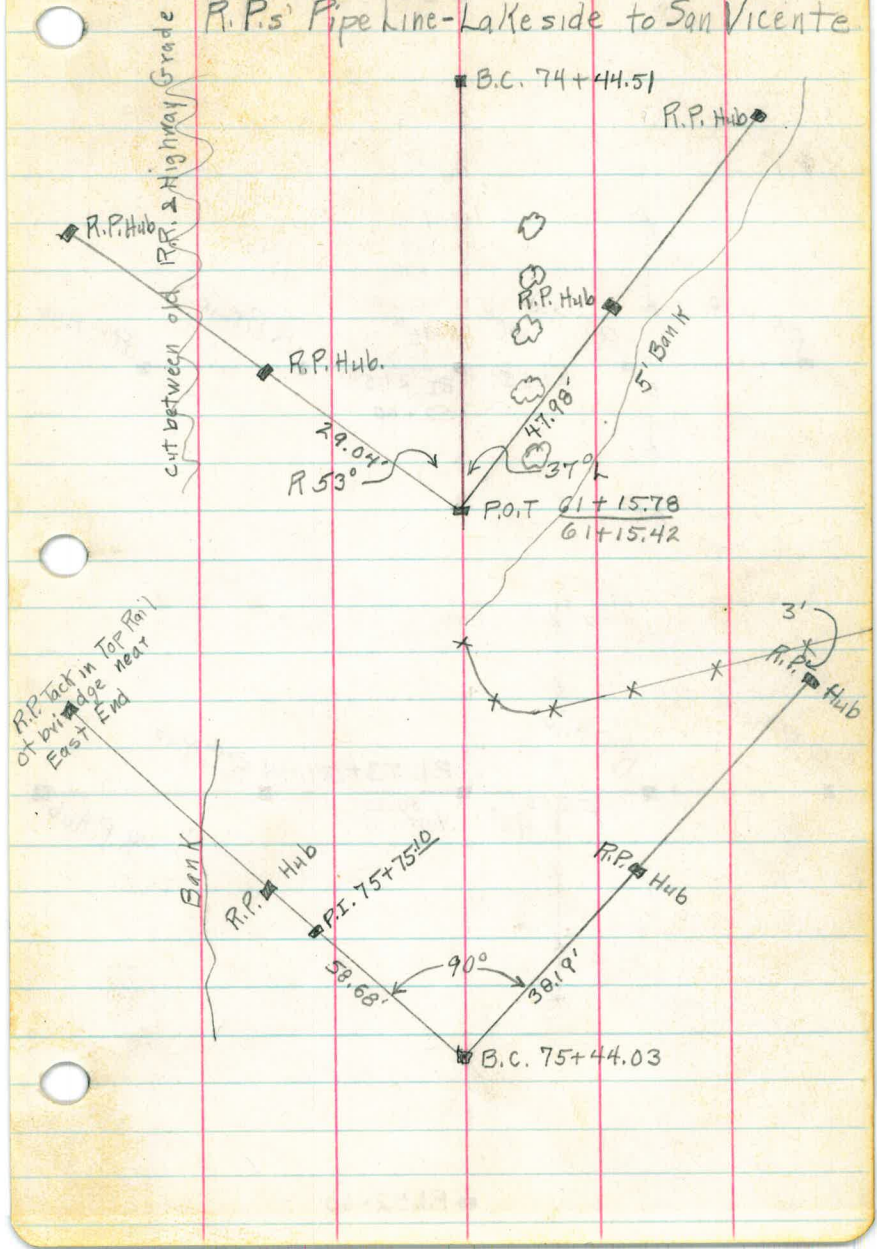 R.P.s' Pipe Line-Lakeside to San Vicente
B.C. 74+44.51
R.P. Hub
cut between old R.R. & Highway Grade
R.P. Hub
R.P. Hub
5' Bank
R.P. Hub.
47.98'
29.04'
R 53°
37° L
P.O.T 61+15.78
61+15.42
3'
R.P.
Hub
R.P. Tack in Top Rail
of bridge near
East End
Bank
R.P. Hub
P.I. 75+75.10
R.P. Hub
90°
58.68'
38.19'
B.C. 75+44.03